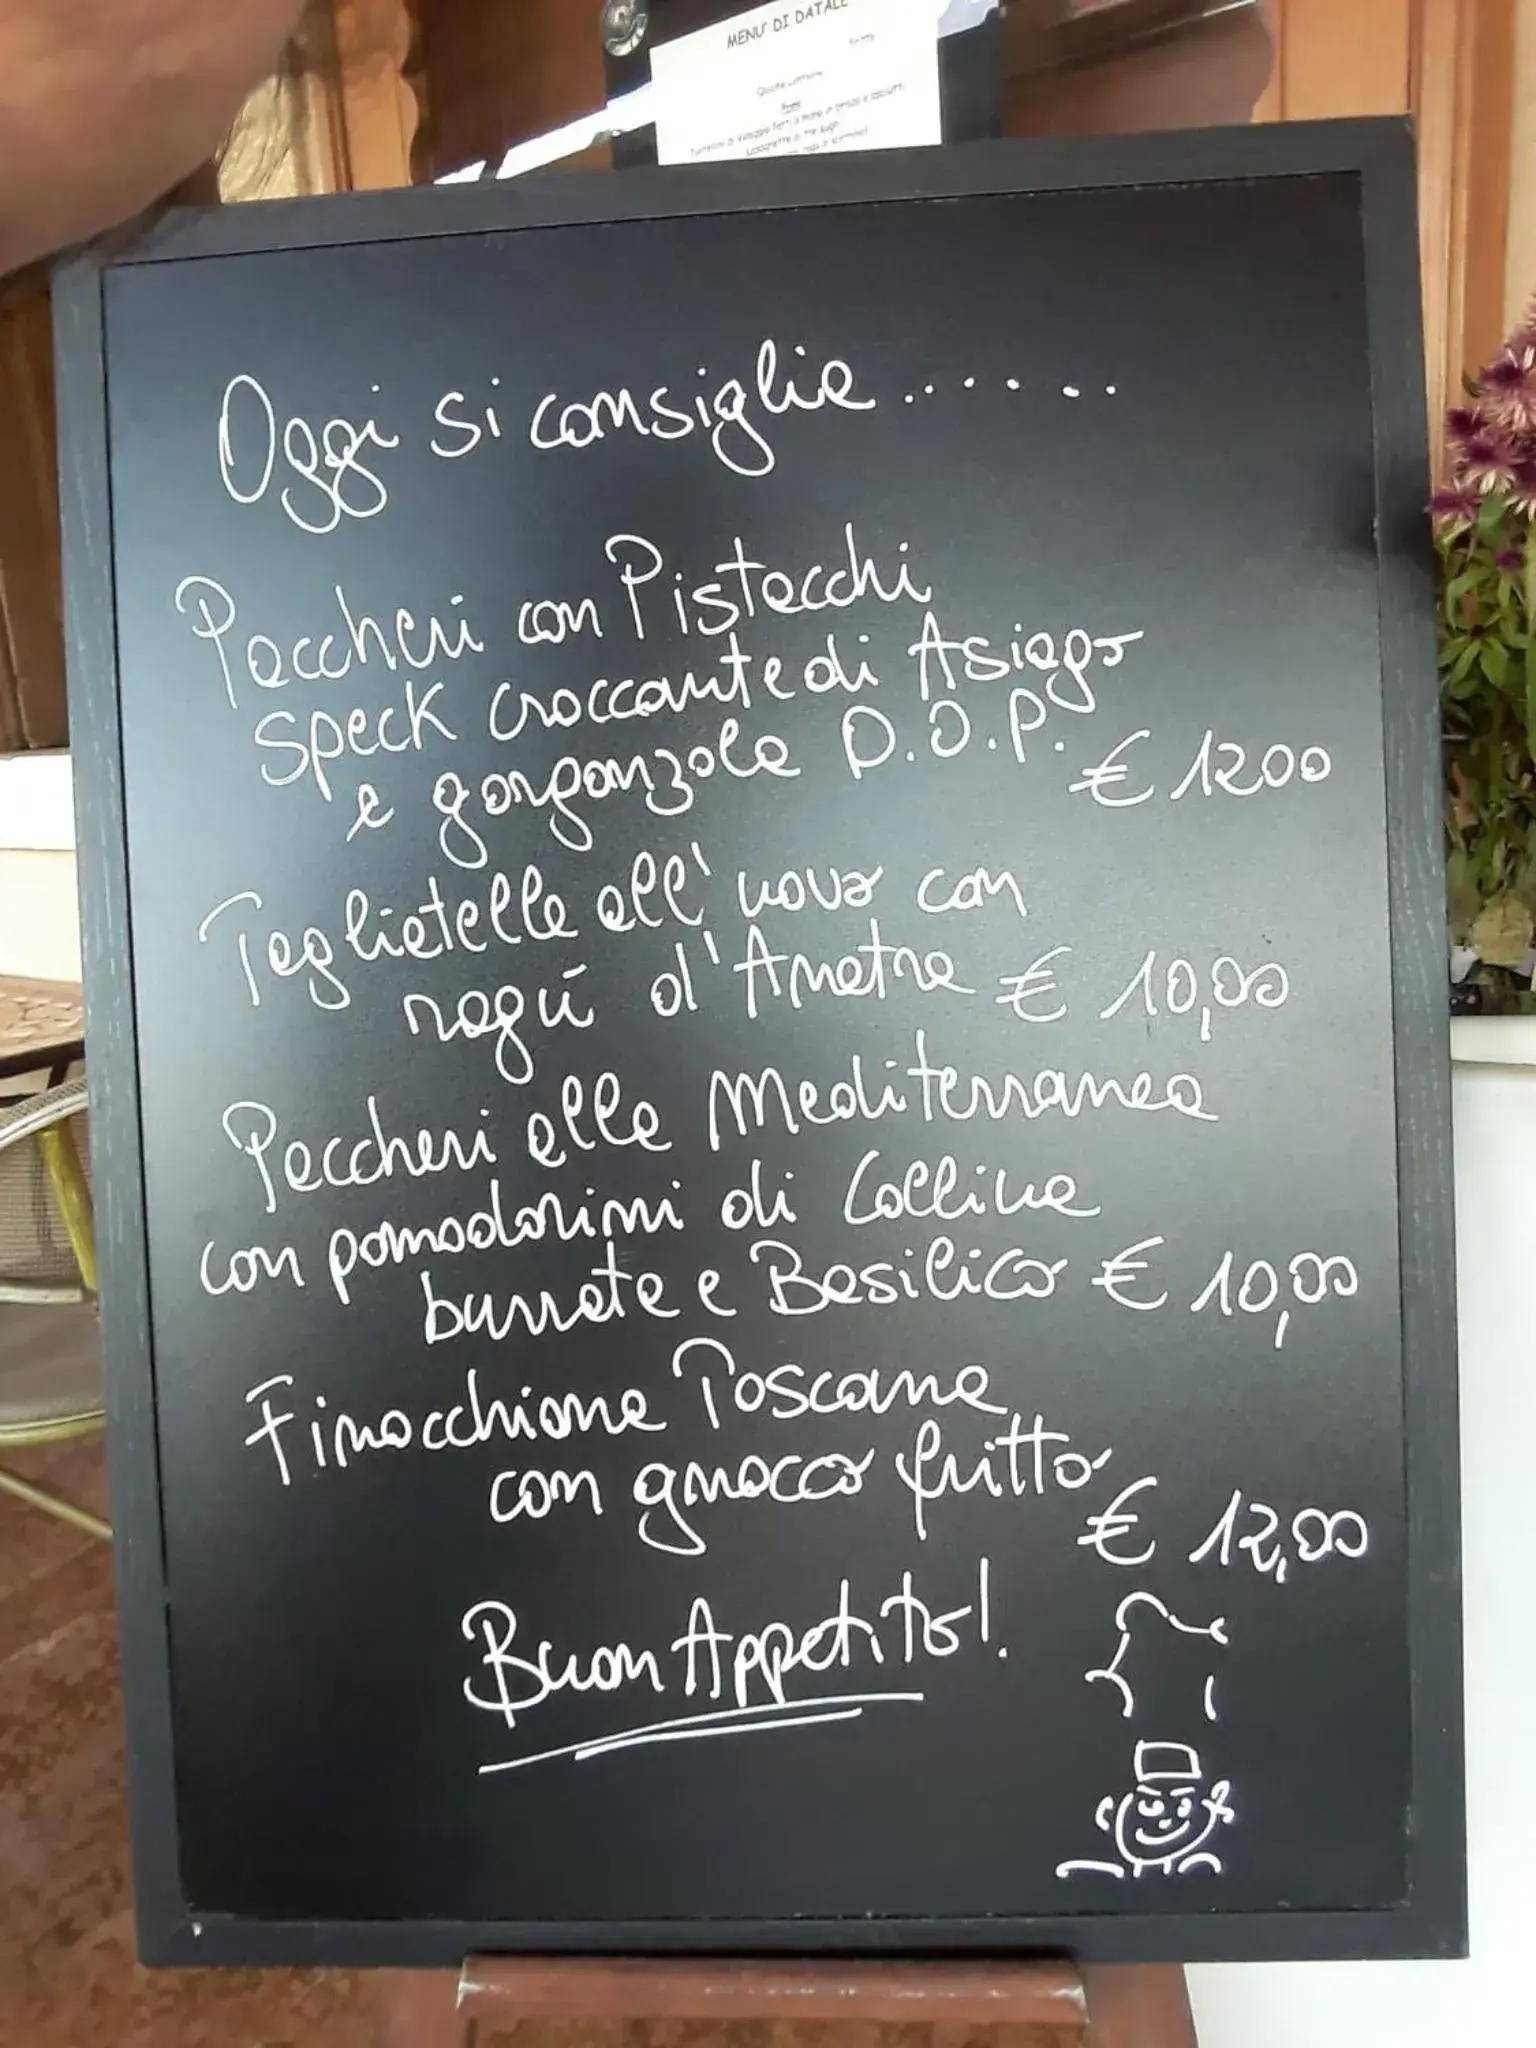 MENU' DI DATALE
Oggi si consiglia......
Paccheri con Pistacchi
speck croccante di Asiago
e gorgonzola D.O.P. € 1200
Tagliatelle all' uova con
ragù d'Anatra € 10,00
Paccheri alla Mediterranea
con pomodorini di Collina
burrata e Basilico € 10,00
Finocchiona Toscana
con gnocco fritto € 12,00
Buon Appetito!